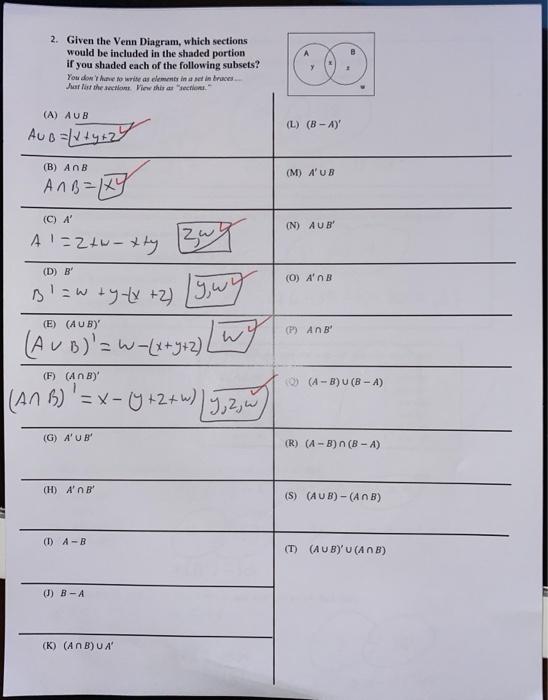 2. Given the Venn Diagram, which sections
would be included in the shaded portion
if you shaded each of the following subsets?
You don't have to write as elements in a set in braces...
Just list the sections. View this as "sections."
A B
y x z
w
(A) A∪B
A∪B = x+y+z
(B) A∩B
A∩B = x
(C) A'
A' = z+w-x+y z,w
(D) B'
B' = w+y-(x+z) y,w
(E) (A∪B)'
(A∪B)' = w-(x+y+z) w
(F) (A∩B)'
(A∩B)' = x-(y+z+w) y,z,w
(G) A'∪B'
(H) A'∩B'
(I) A-B
(J) B-A
(K) (A∩B)∪A'
(L) (B-A)'
(M) A'∪B
(N) A∪B'
(O) A'∩B
(P) A∩B'
(Q) (A-B)∪(B-A)
(R) (A-B)∩(B-A)
(S) (A∪B)-(A∩B)
(T) (A∪B)'∪(A∩B)